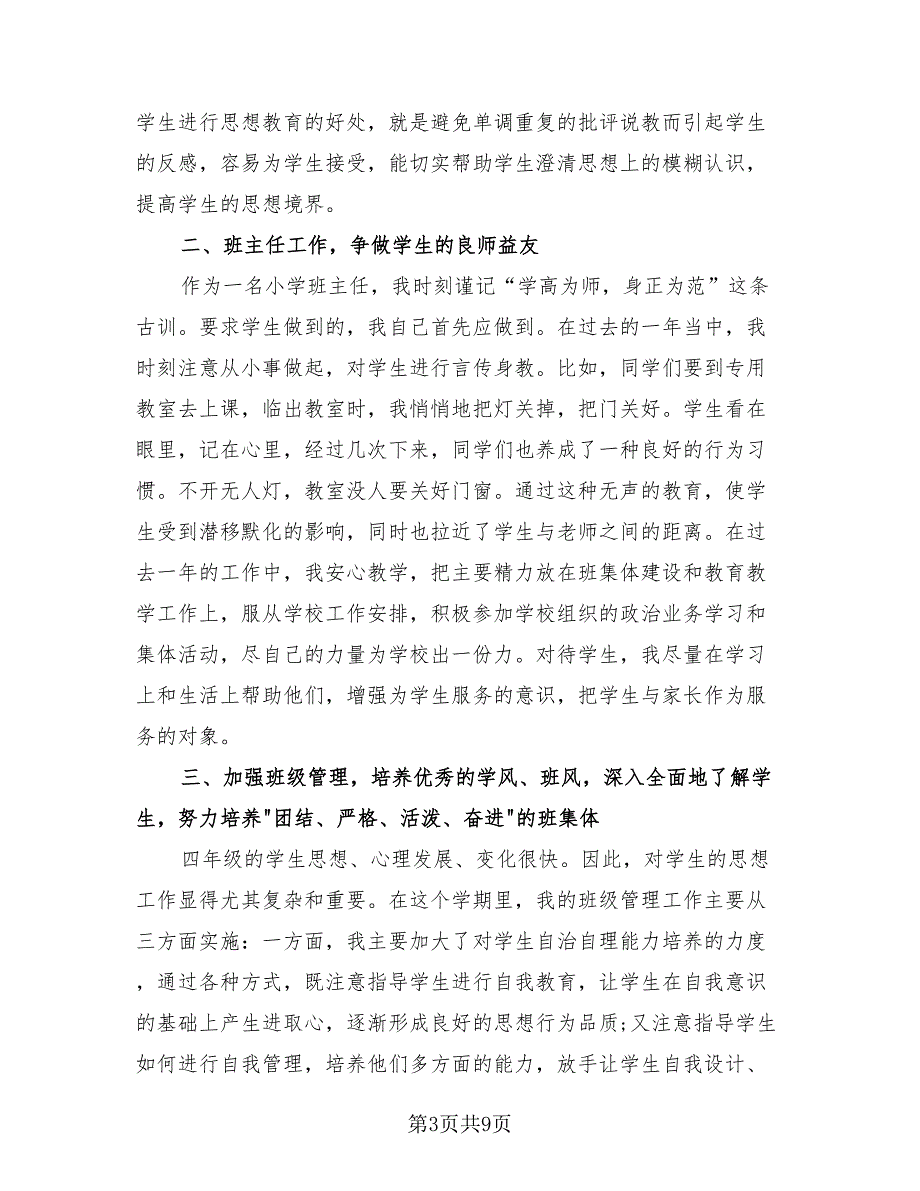 学生进行思想教育的好处，就是避免单调重复的批评说教而引起学生
的反感，容易为学生接受，能切实帮助学生澄清思想上的模糊认识，
提高学生的思想境界。
二、班主任工作，争做学生的良师益友
作为一名小学班主任，我时刻谨记“学高为师，身正为范”这条
古训。要求学生做到的，我自己首先应做到。在过去的一年当中，我
时刻注意从小事做起，对学生进行言传身教。比如，同学们要到专用
教室去上课，临出教室时，我悄悄地把灯关掉，把门关好。学生看在
眼里，记在心里，经过几次下来，同学们也养成了一种良好的行为习
惯。不开无人灯，教室没人要关好门窗。通过这种无声的教育，使学
生受到潜移默化的影响，同时也拉近了学生与老师之间的距离。在过
去一年的工作中，我安心教学，把主要精力放在班集体建设和教育教
学工作上，服从学校工作安排，积极参加学校组织的政治业务学习和
集体活动，尽自己的力量为学校出一份力。对待学生，我尽量在学习
上和生活上帮助他们，增强为学生服务的意识，把学生与家长作为服
务的对象。
三、加强班级管理，培养优秀的学风、班风，深入全面地了解学
生，努力培养"团结、严格、活泼、奋进"的班集体
四年级的学生思想、心理发展、变化很快。因此，对学生的思想
工作显得尤其复杂和重要。在这个学期里，我的班级管理工作主要从
三方面实施：一方面，我主要加大了对学生自治自理能力培养的力度
，通过各种方式，既注意指导学生进行自我教育，让学生在自我意识
的基础上产生进取心，逐渐形成良好的思想行为品质;又注意指导学生
如何进行自我管理，培养他们多方面的能力，放手让学生自我设计、
第3页共9页